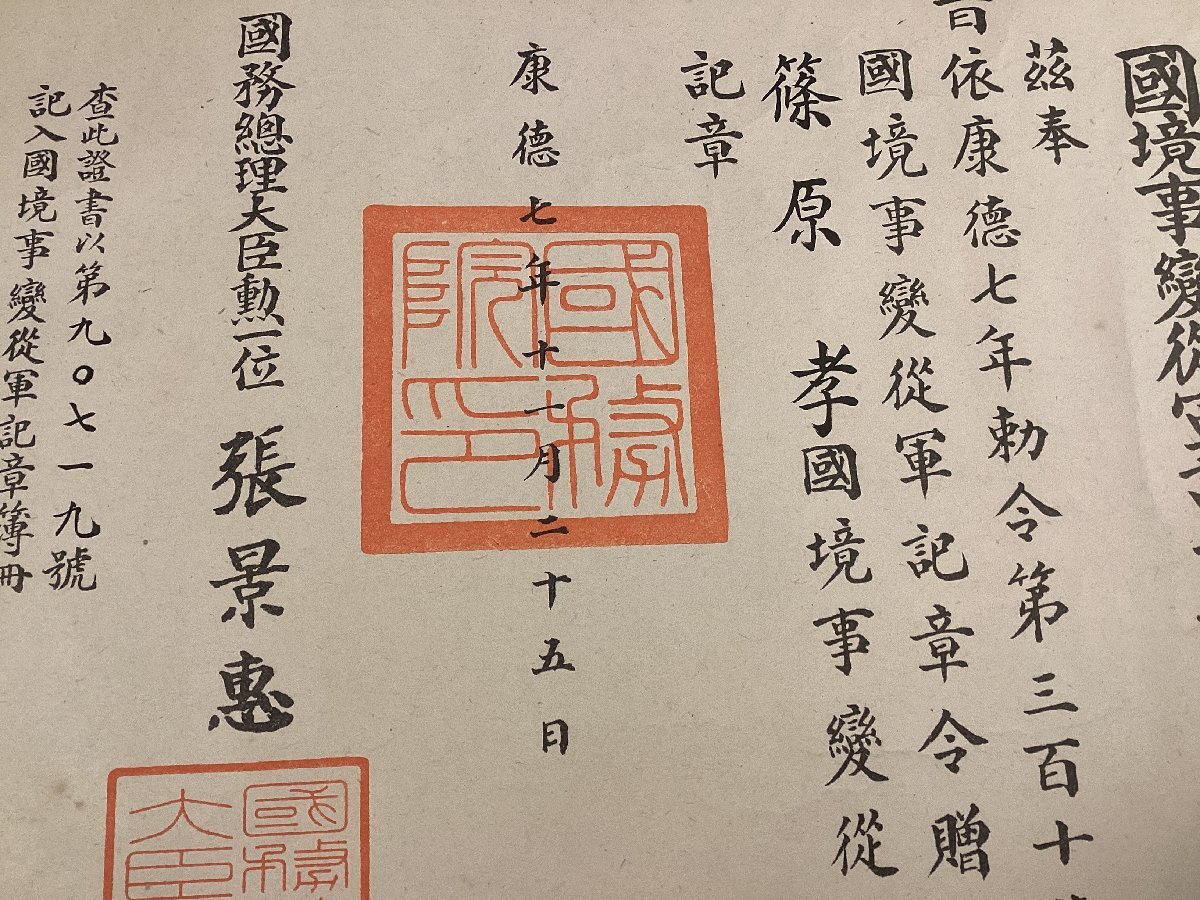 國境事變從軍
茲奉
旨依康德七年勅令第三百十
國境事變從軍記章令贈
篠原 孝國境事變從
記章
康德七年十一月二十五日
國務院印
國務總理大臣勳一位 張景惠
國務
大臣
查此證書以第九〇七一九號
記入國境事變從軍記章簿冊